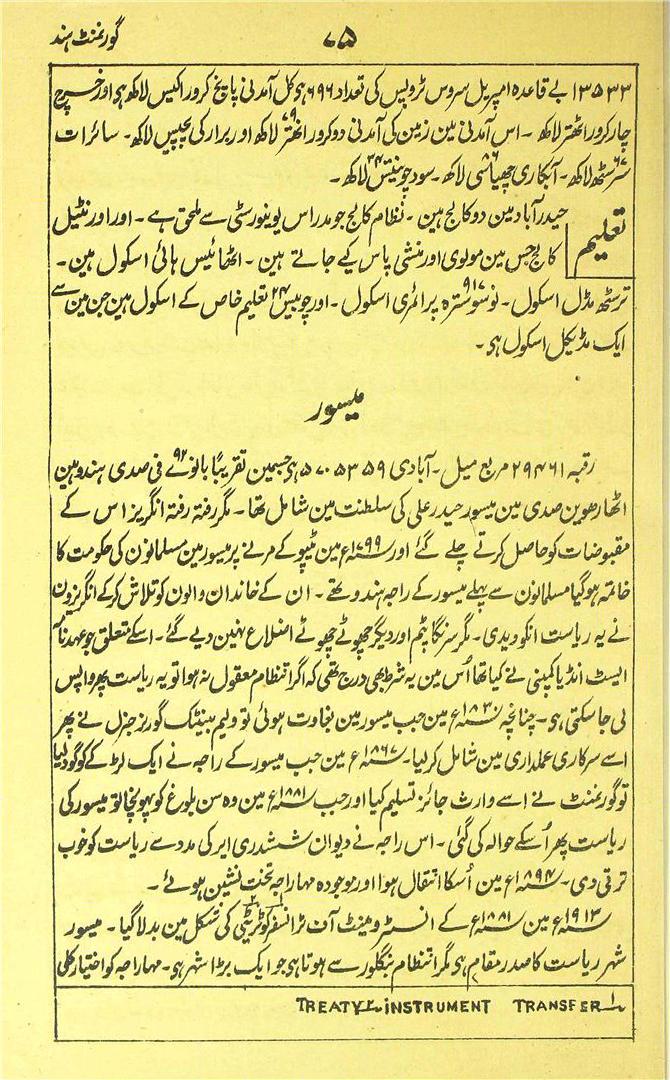 ۷۵
گورنمنٹ ہند
۱۳۵۳۳ بے قاعدہ امپریل سروس ٹروپس کی تعداد ۶۹۶ ہی کل آمدنی پانچ کرور اکیس لاکھ ہی اور خرچ
چار کرور اٹھتر لاکھ ۔ اس آمدنی مین زمین کی آمدنی دو کرور اٹھتر لاکھ اور برار کی پچیس لاکھ ۔ سائرات
سرسٹھ لاکھ ۔ آبکاری چھیاسی لاکھ ۔ سود چونتیس ۳۴ لاکھ ۔
تعلیم
حیدرآباد مین دو کالج ہین ۔ نظام کالج جو مدراس یونیورسٹی سے ملحق ہے ۔ اور اورنٹیل
کالج جس مین مولوی اور منشی پاس کیے جاتے ہین ۔ اٹھائیس ہائی اسکول ہین ۔
ترسٹھ مڈل اسکول ۔ نو سو سترہ ۹۱۷ پرائمری اسکول ۔ اور چوبیس ۲۴ تعلیم خاص کے اسکول ہین جن مین سے
ایک مڈیکل اسکول ہی ۔
میسور
رقبہ ۲۹۴۶۱ مربع میل ۔ آبادی ۵۷۰۵۳۵۹ ہی جسمین تقریباً بانوے ۹۲ فی صدی ہندو ہین
اٹھارھوین صدی مین میسور حیدر علی کی سلطنت مین شامل تھا ۔ مگر رفتہ رفتہ انگریز اس کے
مقبوضات کو حاصل کرتے چلے گئے اور ۱۷۹۹ء مین ٹیپو کے مرنے پر میسور مین مسلمانون کی حکومت کا
خاتمہ ہو گیا مسلمانون سے پہلے میسور کے راجہ ہندو تھے ۔ ان کے خاندان والون کو تلاش کر کے انگریزون
نے یہ ریاست انکو دیدی ۔ مگر سرنگا پٹم اور دیگر چھوٹے چھوٹے اضلاع نہین دیے گئے ۔ اسکے متعلق جو عہدنامہ
ایسٹ انڈیا کمپنی نے کیا تھا اُس مین یہ شرط بھی درج تھی کہ اگر انتظام معقول نہ ہوا تو یہ ریاست پھر واپس
لی جا سکتی ہی ۔ چنانچہ ۱۸۳۰ء مین جب میسور مین بغاوت ہوئی تو ولیم بینٹنک گورنر جنرل نے پھر
اسے سرکاری عملداری مین شامل کر لیا ۔ ۱۸۶۷ء مین جب میسور کے راجہ نے ایک لڑکے کو گود لیا
تو گورنمنٹ نے اسے وارث جائز تسلیم کیا اور جب ۱۸۸۱ء مین وہ سن بلوغ کو پہونچا تو میسور کی
ریاست پھر اُسکے حوالہ کی گئی ۔ اس راجہ نے دیوان ششدری ایر کی مدد سے ریاست کو خوب
ترقی دی ۔ ۱۸۹۴ء مین اُسکا انتقال ہوا اور موجودہ مہاراجہ تخت نشین ہوئے ۔
۱۹۱۳ء مین ۱۸۸۱ء کے انسٹرومینٹ آف ٹرانسفر کو ٹریٹی کی شکل مین بدلا گیا ۔ میسور
شہر ریاست کا صدر مقام ہی مگر انتظام بنگلور سے ہوتا ہی جو ایک بڑا شہر ہی ۔ مہاراجہ کو اختیار کلی
TREATY ۲ INSTRUMENT TRANSFER ۱